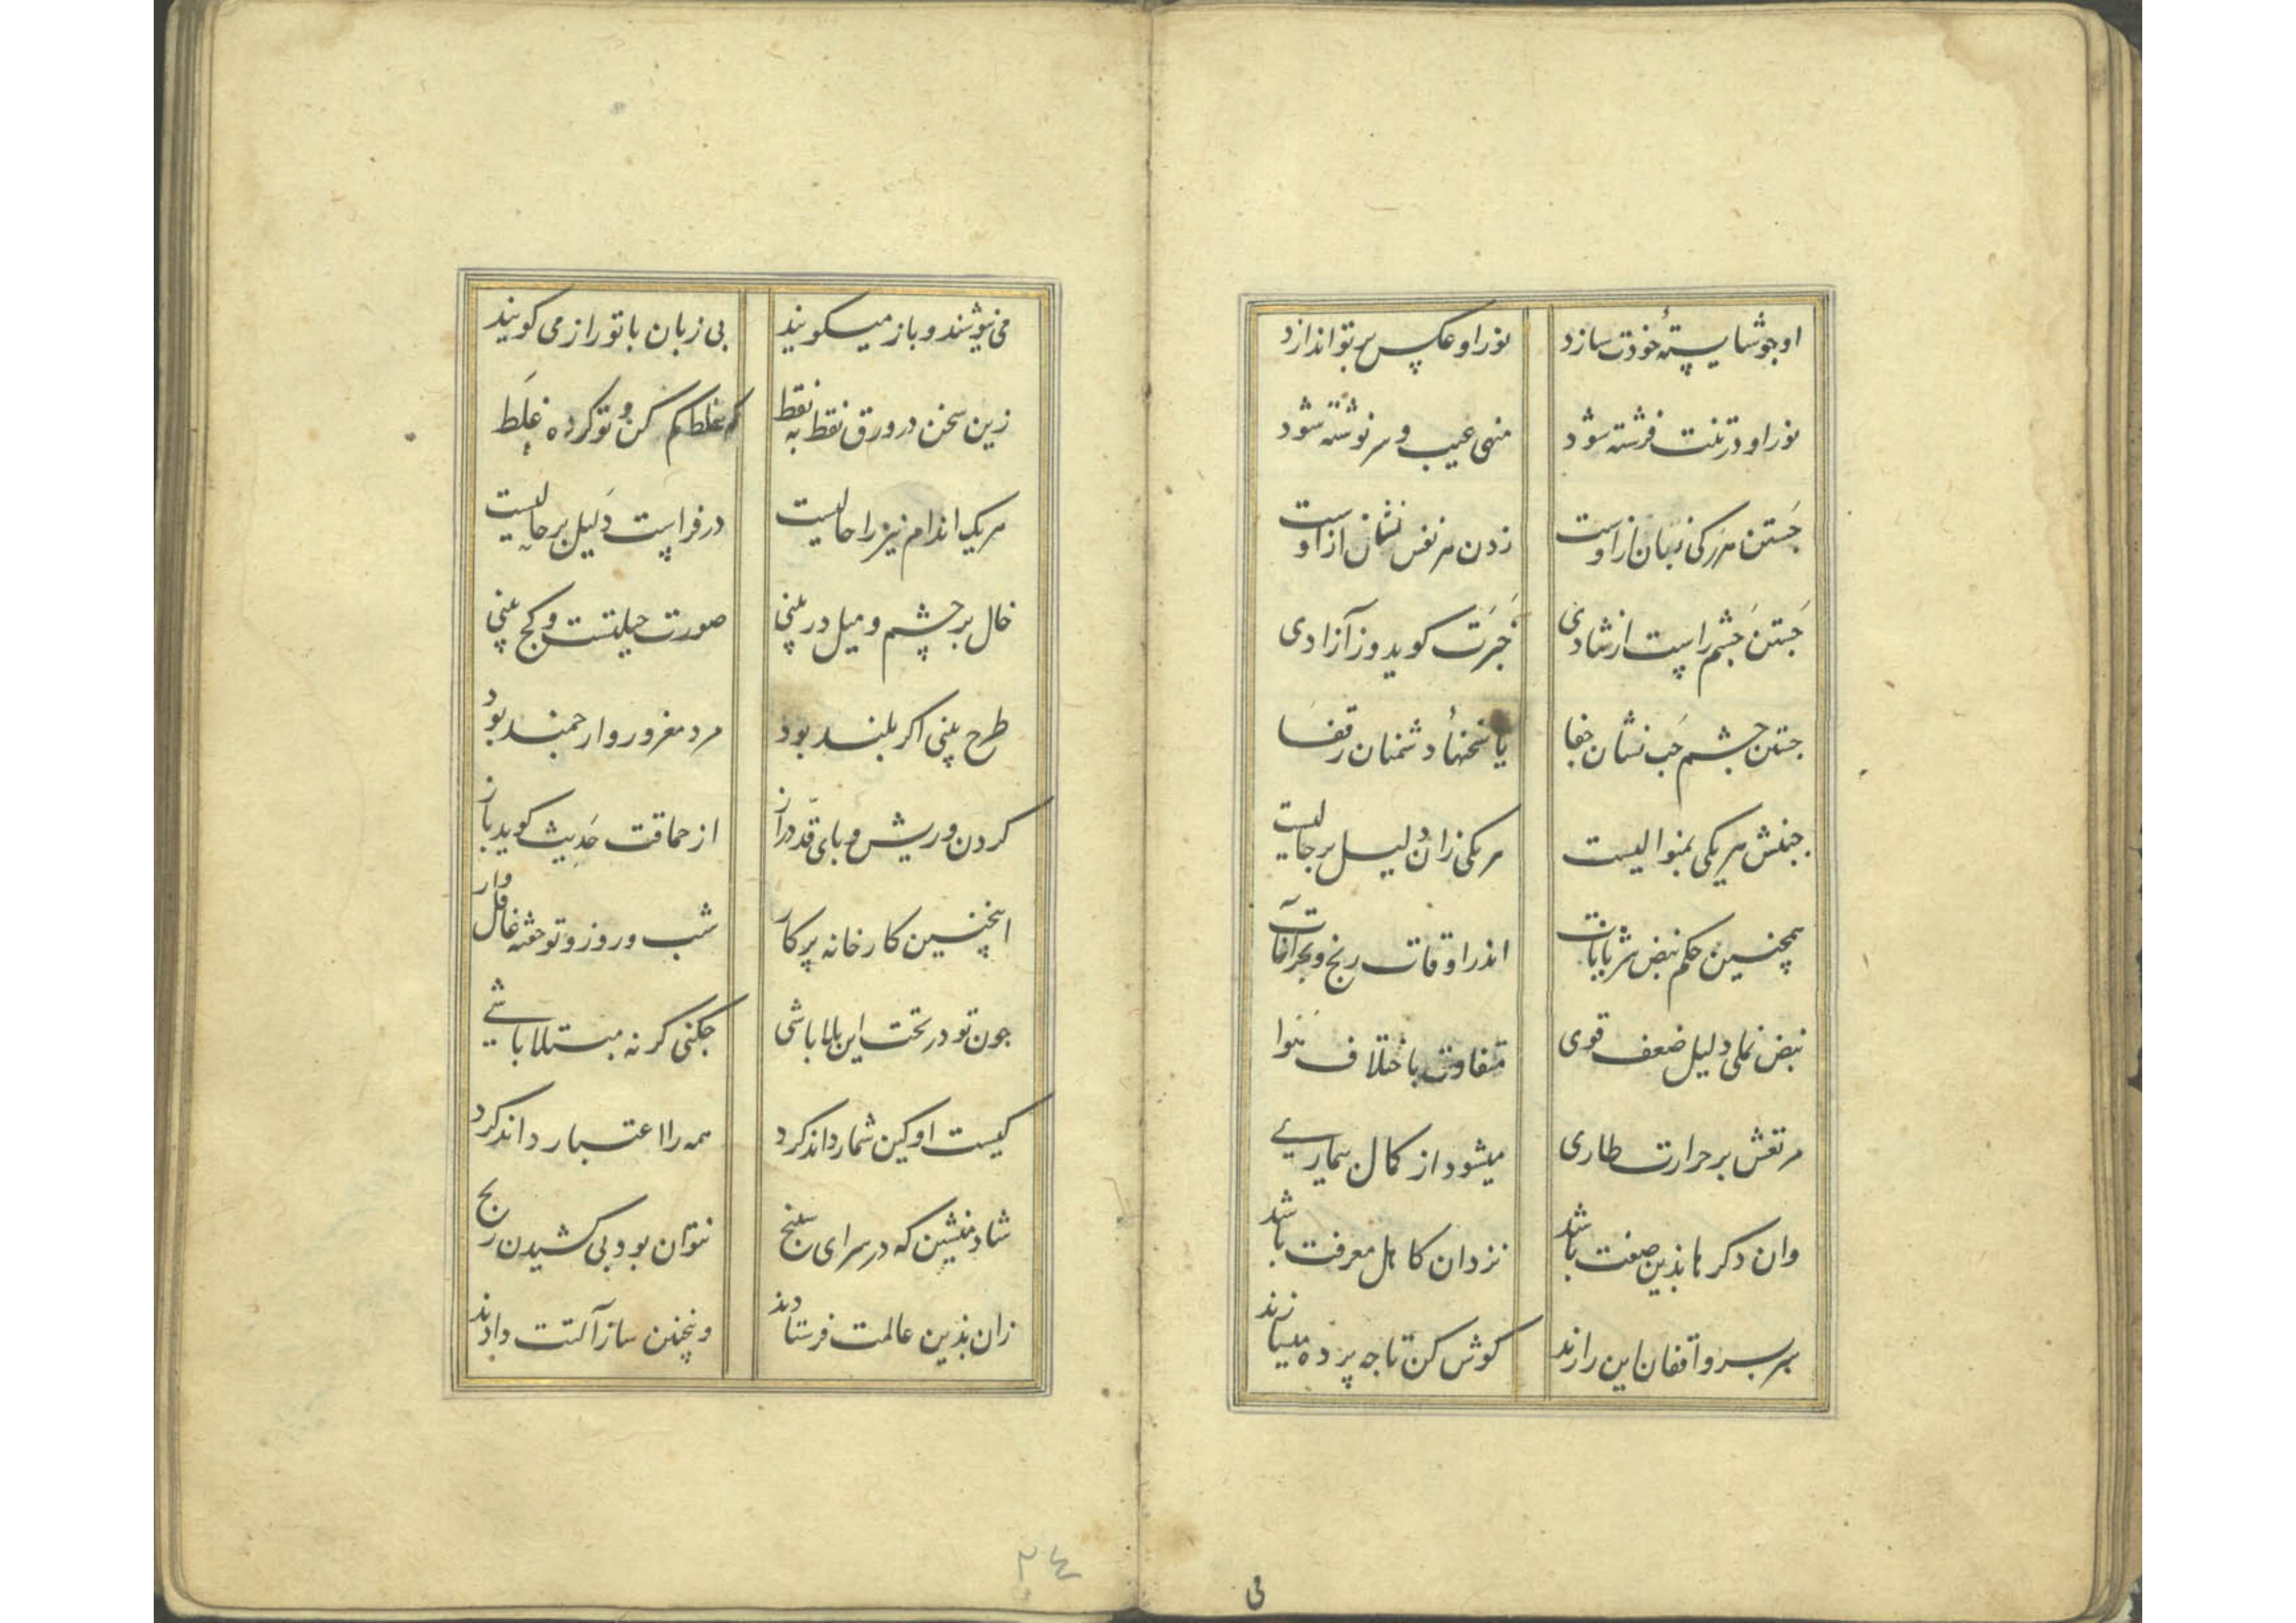 او جو شایستهٔ خودت سازد نور او عکس بر تو اندازد
نور او در تنت فرشته شود منهی غیب و سرنوشته شود
جَستن هر رکی زبان ازوست زدن هر نفس نشان ازوست
جَستن جَشم راست از شادی خبرَت کوید و ز آزادی
جستن جشم جَب نشان جفا یا سخنهاٴ دشمنان ز قفا
جنبش هر یکی بمنوالیست هر یکی زان دلیل بر حالیست
همچنین حکم نبض شریانات اندر اوقات رنج و بحرانات
نبض نملی دلیل ضعف قوی متفاوت باختلاف نَوا
مرتعش بر حرارت طاری میشود از کمال بیماری
وان دکرها بذین صفت باشد نزد آن کاهل معرفت باشد
سر بسر واقفان این رازند کوش کن تا جه پرده میسازند
می
می نیوشند و باز میکویند بی زبان با تو راز می کویند
زین سخن در ورق نقط به نقط کم غلط کن و تو کرده غلَط
هر یک اندام نیز را حالیست در فراست دَلیل بر حالیست
خال بر جشم و میل در بینی صورت حیلتست و کج بینی
طرح بینی اکر بلند بود مرد مغرور و ارجمند بود
کردن و ریش و پای و قد دراز از حماقت حَدیث کوید باز
اینچنین کارخانه پر کار شب و روز و تو خفته غافل وار
جون تو در تخت این بلا باشی جکنی کر نه مبتلا باشی
کیست او کین شمار داند کرد همه را اعتبار داند کرد
شاد منشین که در سرای سپنج نتوان بود بی کشیدن رنج
زان بذین عالمت فرستادند وینچنین ساز آلتت دادند
۲٤